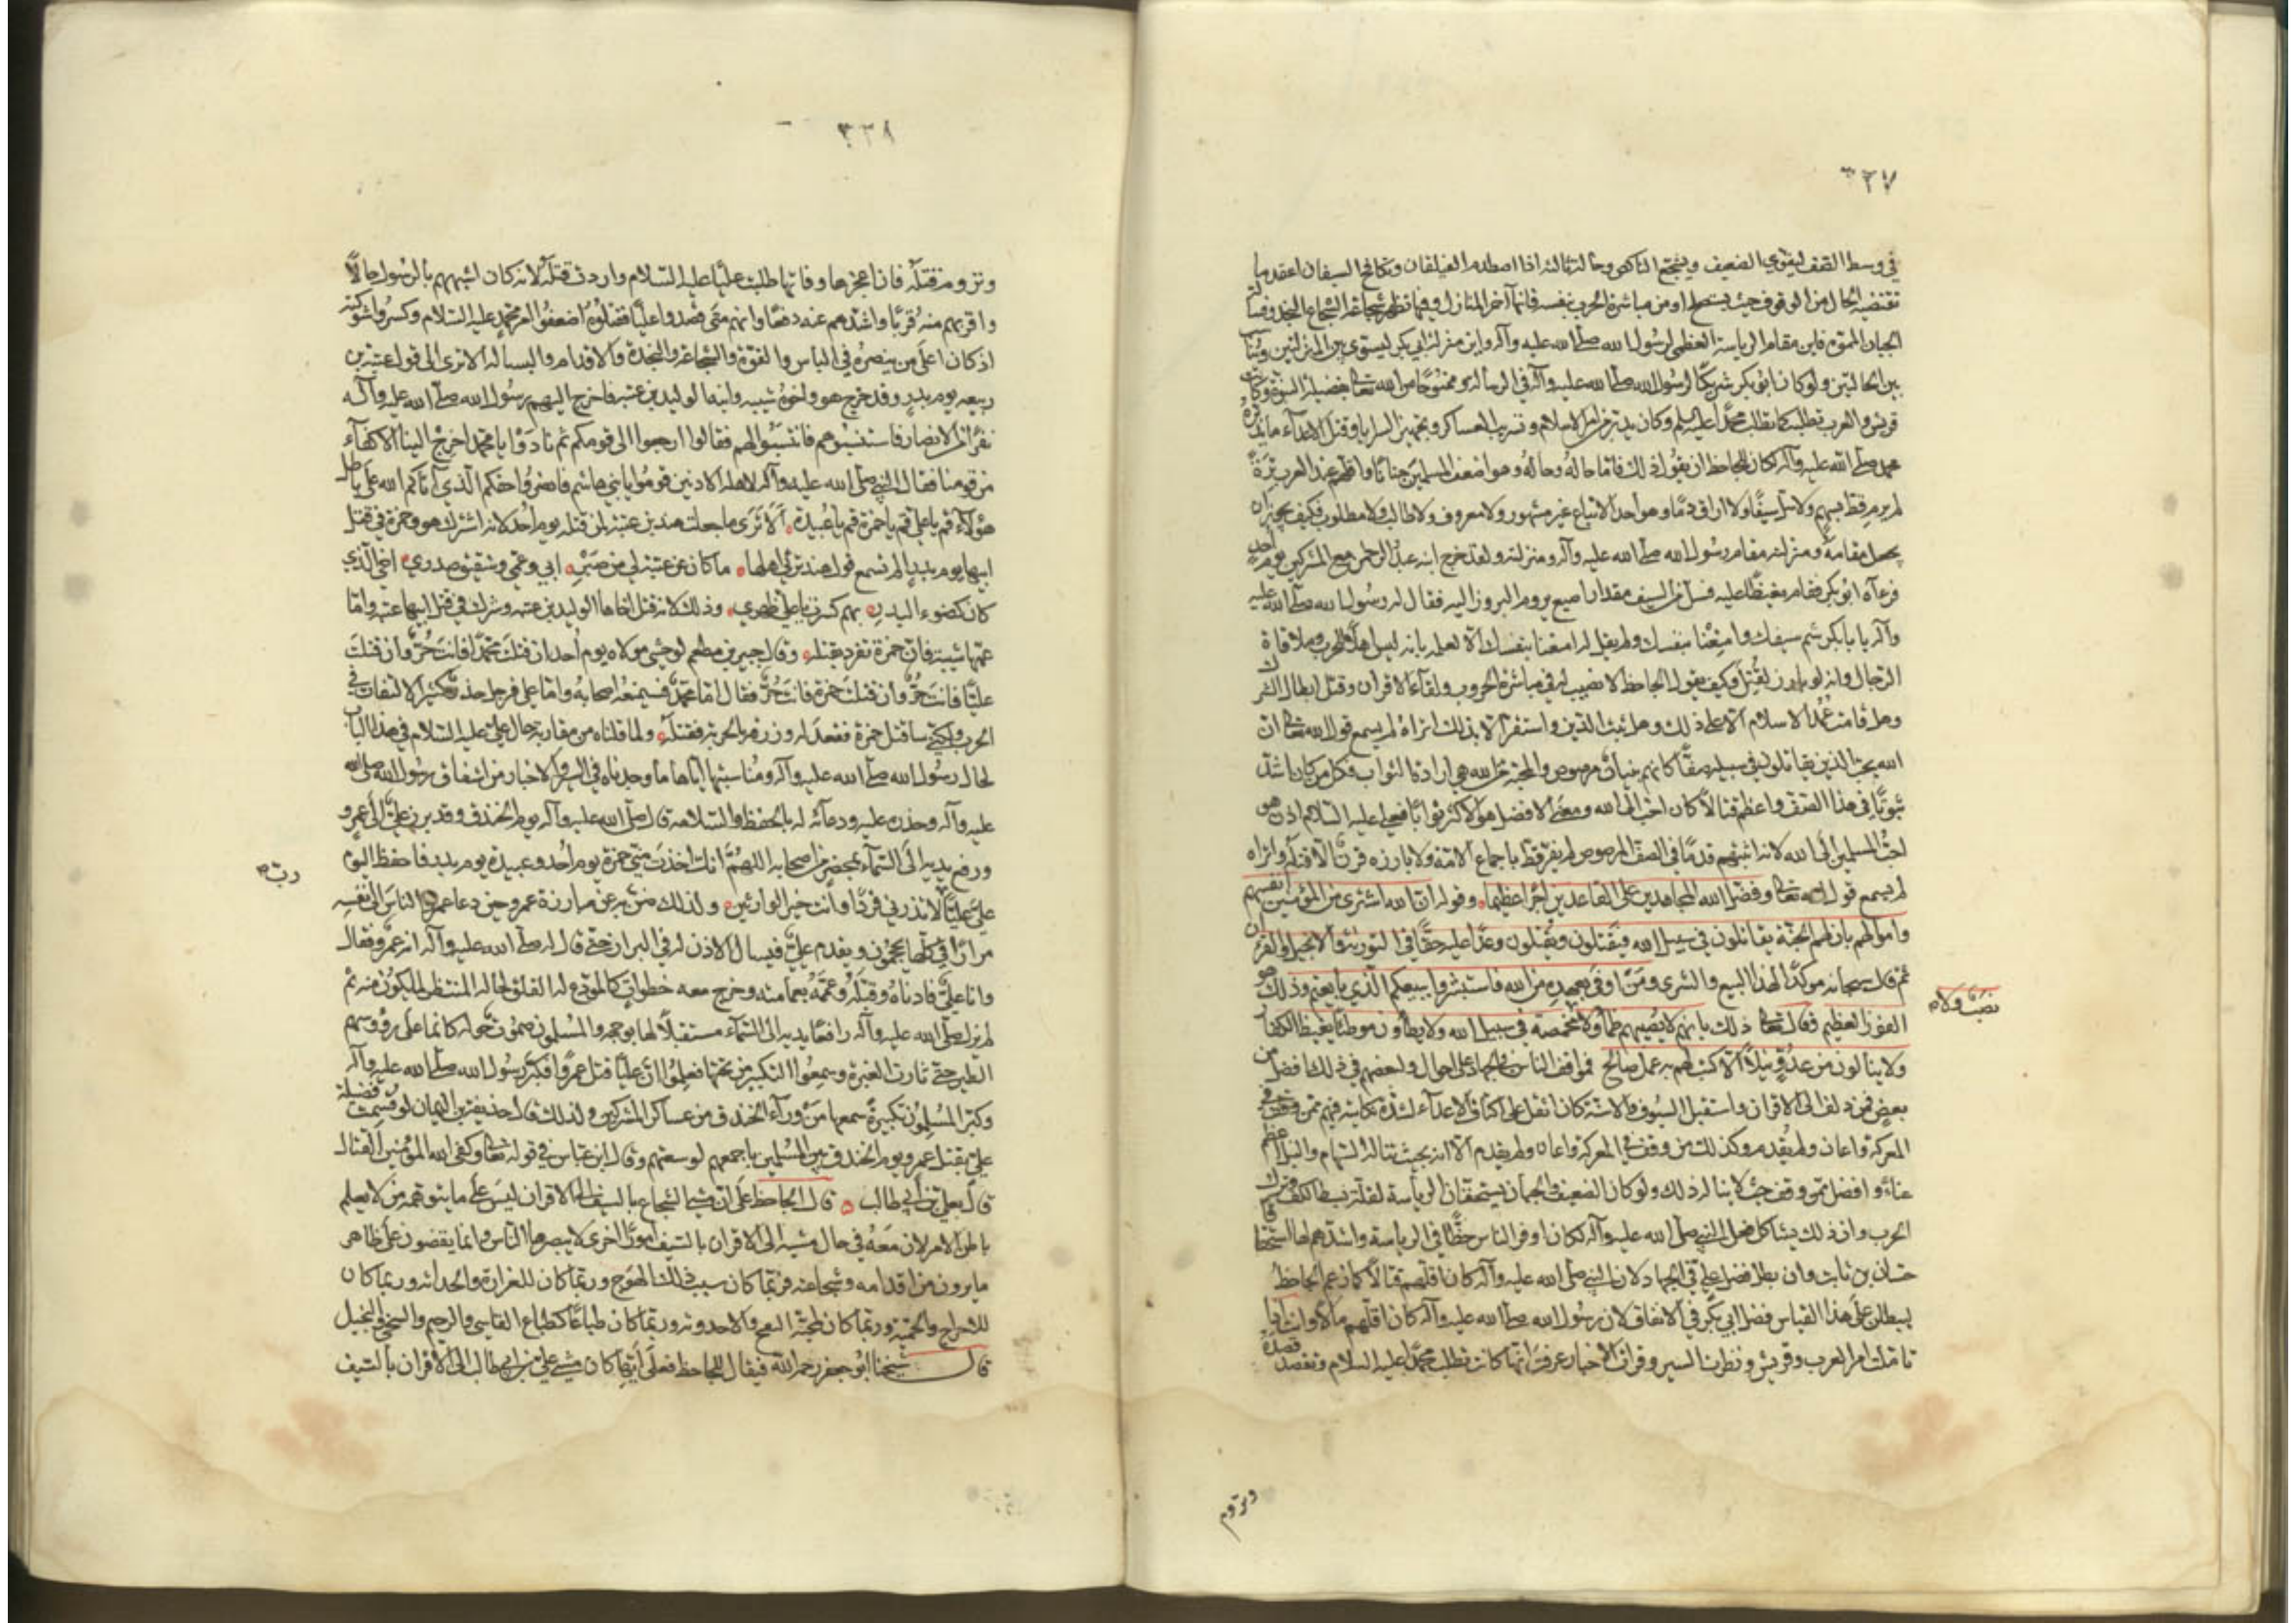 ٣٢٧
في وسط الصف ليقوي الضعيف ويشجع الناكص وحالة ثالثة اذا اصطدم الفيلقان وتكافح السيفان اعتمد ما
تقتضيه الحال من الوقوف حيث يستصلح او من مباشرة الحرب بنفسه فانها آخر المنازل وفيها تظهر شجاعة الشجاع النجد وفسالة
الجبان المموه فاين مقام الرياسة العظمى لرسول الله صلى الله عليه وآله واين منزلة ابي بكر ليستوي بين المنزلتين ويناسب
بين الحالتين ولو كان ابو بكر شريكا لرسول الله صلى الله عليه وآله في الرسالة وممنوحا من الله تعالى بفضيلة النبوة وكانت
قريش والعرب تطلبه كما تطلب محمدا عليه السلم وكان يدبر من امر الاسلام وتسريب العساكر وتجهيز السرايا وقتل الاعداء ما يدبره
محمد صلى الله عليه وآله لكان للجاحظ ان يقول ذلك فاما حاله وحاله وهو اضعف المسلمين جنانا واقلهم عند العرب ترة
لم يرم قط بسهم ولا سل سيفا ولا اراق دما وهو احد الاتباع غير مشهور ولا معروف ولا طالب ولا مطلوب فكيف يجوز ان
يجعل مقامه ومنزلته مقام رسول الله صلى الله عليه وآله ومنزلته ولقد خرج ابنه عبد الرحمن مع المشركين يوم احد
فرآه ابو بكر فقام مغيظا عليه فسل من السيف مقدار اصبع يروم البروز اليه فقال له رسول الله صلى الله عليه
وآله يا با بكر شم سيفك وامتعنا بنفسك ولم يقل له امتعنا بنفسك الا لعلمه بانه ليس اهلا للحرب وملاقاة
الرجال وانه لو بارز لقتل وكيف يقول الجاحظ لا فضيلة لمباشرة الحروب ولقاء الاقران وقتل ابطال الشرك
وهل قامت عمد الاسلام الا على ذلك وهل ثبت الدين واستقر الا بذلك اتراه لم يسمع قول الله تعالى ان
الله يحب الذين يقاتلون في سبيله صفا كانهم بنيان مرصوص والمحبة من الله هي ارادة الثواب فكل من كان اشد
ثبوتا في هذا الصف واعظم قتالا كان احب الى الله ومعنى الافضل هو الاكثر ثوابا فعلي عليه السلام اذن هو
احب المسلمين الى الله لانه اثبتهم قدما في الصف المرصوص لم يفر قط باجماع الامة ولا بارزه قرن الا قتله واتراه
لم يسمع قول الله تعالى وفضل الله المجاهدين على القاعدين اجرا عظيما وقوله ان الله اشترى من المؤمنين انفسهم
واموالهم بان لهم الجنة يقاتلون في سبيل الله فيقتلون ويقتلون وعدا عليه حقا في التورية والانجيل والقران
ثم قال سبحانه مؤكدا لهذا البيع والشرى ومن اوفى بعهده من الله فاستبشروا ببيعكم الذي بايعتم وذلك هو
الفوز العظيم وقال تعالى ذلك بانهم لا يصيبهم ظمأ ولا مخمصة في سبيل الله ولا يطأون موطئا يغيظ الكفار
نصب ولا
ولا ينالون من عدو نيلا الا كتب لهم به عمل صالح فمواقف الناس في الجهاد على احوال وبعضهم في ذلك افضل من
بعض فمن دلف الى الاقران واستقبل السيوف والاسنة كان اثقل على اكتاف الاعداء لشدة نكايته فيهم ممن وقف في
المعركة واعان ولم يقدم وكذلك من وقف في المعركة واعان ولم يقدم الا انه بحيث تناله السهام والنبل اعظم
عناء وافضل ممن وقف حيث لا يناله ذلك ولو كان الضعيف والجبان يستحقان الرياسة لقلة بسط الكف وترك
الحرب وان ذلك يشاكل فعل النبي صلى الله عليه وآله لكان اوفر الناس حظا في الرياسة واشدهم لها استحقاقا
حسان بن ثابت وان بطل فضل علي في الجهاد لان النبي صلى الله عليه وآله كان اقلهم قتالا كما زعم الجاحظ
ليبطلن على هذا القياس فضل ابي بكر في الانفاق لان رسول الله صلى الله عليه وآله كان اقلهم مالا وانت اذا
تاملت امر العرب وقريش ونظرت السير وقرات الاخبار عرفت انها كانت تطلب محمدا عليه السلام وتقصد قصده
وتروم
٣٣٨
وتروم قتله فان اعجزها وفاتها طلبت عليا عليه السلام وارادت قتله لانه كان اشبههم بالرسول حالا
واقربهم منه قربا واشدهم عنه دفعا وانهم متى قصدوا عليا فقتلوه اضعفوا امر محمد عليه السلام وكسروا شوكته
اذ كان اعلى من ينصره في الباس والقوة والشجاعة والنجدة والاقدام والبسالة الا ترى الى قول عتبة بن
ربيعه يوم بدر وقد خرج هو واخوه شيبه وابنه الوليد بن عتبه فاخرج اليهم رسول الله صلى الله عليه وآله
نفرا من الانصار فاستنسبوهم فانتسبوا لهم فقالوا ارجعوا الى قومكم ثم نادوا يا محمد اخرج الينا الاكفاء
من قومنا فقال النبي صلى الله عليه وآله لاهله الادنين قوموا يا بني هاشم فانصروا حقكم الذي آتاكم الله على باطل
هؤلاء قم يا علي قم يا حمزة قم يا عبيدة الا ترى ما جعلت هند بن عتبة لمن قتله يوم احد لانه اشترك هو وحمزة في قتل
ابيها يوم بدر الم تسمع قول هند ترثي اهلها ما كان عن عتبة لي من صبر ابي وعمي وشقيق صدري اخي الذي
كان كضوء البدر بهم كسرت يا علي ظهري وذلك لانه قتل اخاها الوليد بن عتبه وشرك في قتل ابيها عتبه واما
عمها شيبة فان حمزة تفرد بقتله وقال جبير بن مطعم لوحشي مولاه يوم احد ان قتلت محمدا فانت حر وان قتلت
عليا فانت حر وان قتلت حمزة فانت حر فقال اما محمد فسيمنعه اصحابه واما علي فرجل حذر كثير الالتفات في
الحرب ولكني ساقتل حمزة فقعد له وزرقه بالحربة فقتله ولما قلناه من مقاربة حال علي عليه السلام في هذا الباب
لحال رسول الله صلى الله عليه وآله ومناسبتها اياها ما وجدناه في السير والاخبار من اشفاق رسول الله صلى الله
عليه وآله وحذره عليه ودعائه له بالحفظ والسلامة قال صلى الله عليه وآله يوم الخندق وقد برز علي الى عمرو
ورفع يديه الى السماء بمحضر من اصحابه اللهم انك اخذت مني حمزة يوم احد وعبيدة يوم بدر فاحفظ اليوم
رب
علي عليا لا تذرني فردا وانت خير الوارثين ولذلك ضن به عن مبارزة عمرو حين دعا عمرو الناس الى نفسه
مرارا في كلها يحجمون ويقدم علي فيسال الاذن له في البراز حتى قال له صلى الله عليه وآله انه عمرو فقال
وانا علي فادناه وقبله وعممه بعمامته وخرج معه خطوات كالمودع له القلق لحاله المنتظر لما يكون منه ثم
لم يزل صلى الله عليه وآله رافعا يديه الى السماء مستقبلا لها بوجهه والمسلمون صموت حوله كانما على رؤوسهم
الطير حتى ثارت الغبرة وسمعوا التكبير من تحتها فعلموا ان عليا قتل عمروا فكبر رسول الله صلى الله عليه وآله
وكبر المسلمون تكبيرة سمعها من وراء الخندق من عساكر المشركين ولذلك قال حذيفة بن اليمان لو قسمت فضيلة
علي بقتل عمرو يوم الخندق بين المسلمين باجمعهم لوسعتهم وقال ابن عباس في قوله تعالى وكفى الله المؤمنين القتال
قال بعلي بن ابي طالب قال الجاحظ على ان مشي الشجاع بالسيف الى الاقران ليس على ما يتوهمه من لا يعلم
باطن الامر لان معه في حال مشيه الى الاقران بالسيف امورا اخرى لا يبصرها الناس وانما يقضون على ظاهر
ما يرون من اقدامه وشجاعته فربما كان سبب ذلك الهوج وربما كان للغرارة والحداثة وربما كان
للاحراج والحمية وربما كان لمحبة النفج والاحدوثة وربما كان طباعا كطباع القاسي والرحيم والسخي والبخيل
قال شيخنا ابو جعفر رحمه الله فيقال للجاحظ فعلى ايها كان مشي علي بن ابي طالب الى الاقران بالسيف